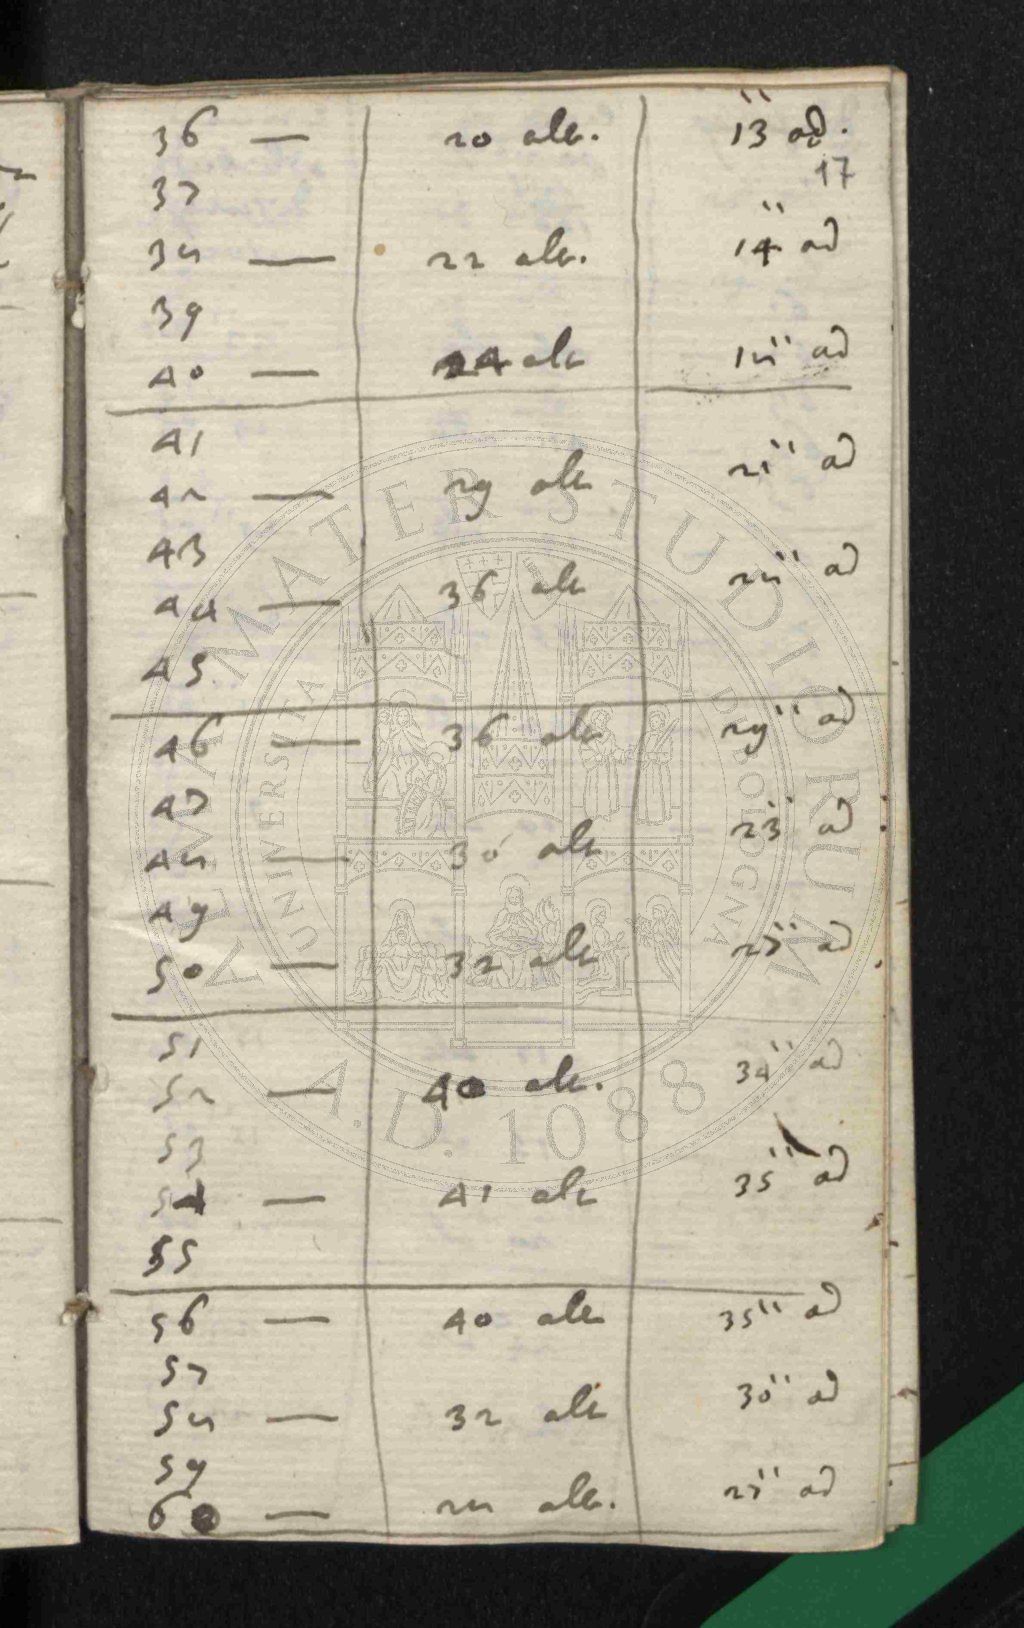 36 — 20 alt. 13'' ad.
17
37
38 — 22 alt. 14'' ad
39
40 — 24 alt 18'' ad
41
42 — 29 alt 21'' ad
43
44 — 36 alt 28'' ad
45
46 — 36 alt 29'' ad
47
48 — 30 alt 23'' ad
49
50 — 32 alt 27'' ad
51
52 — 40 alt. 34'' ad
53
54 — 41 alt 35'' ad
55
56 — 40 alt 35'' ad
57
58 — 32 alt 30'' ad
59
60 — 28 alt. 25'' ad
ALMA MATER STUDIORUM
A.D. 1088
UNIVERSITÀ DI BOLOGNA